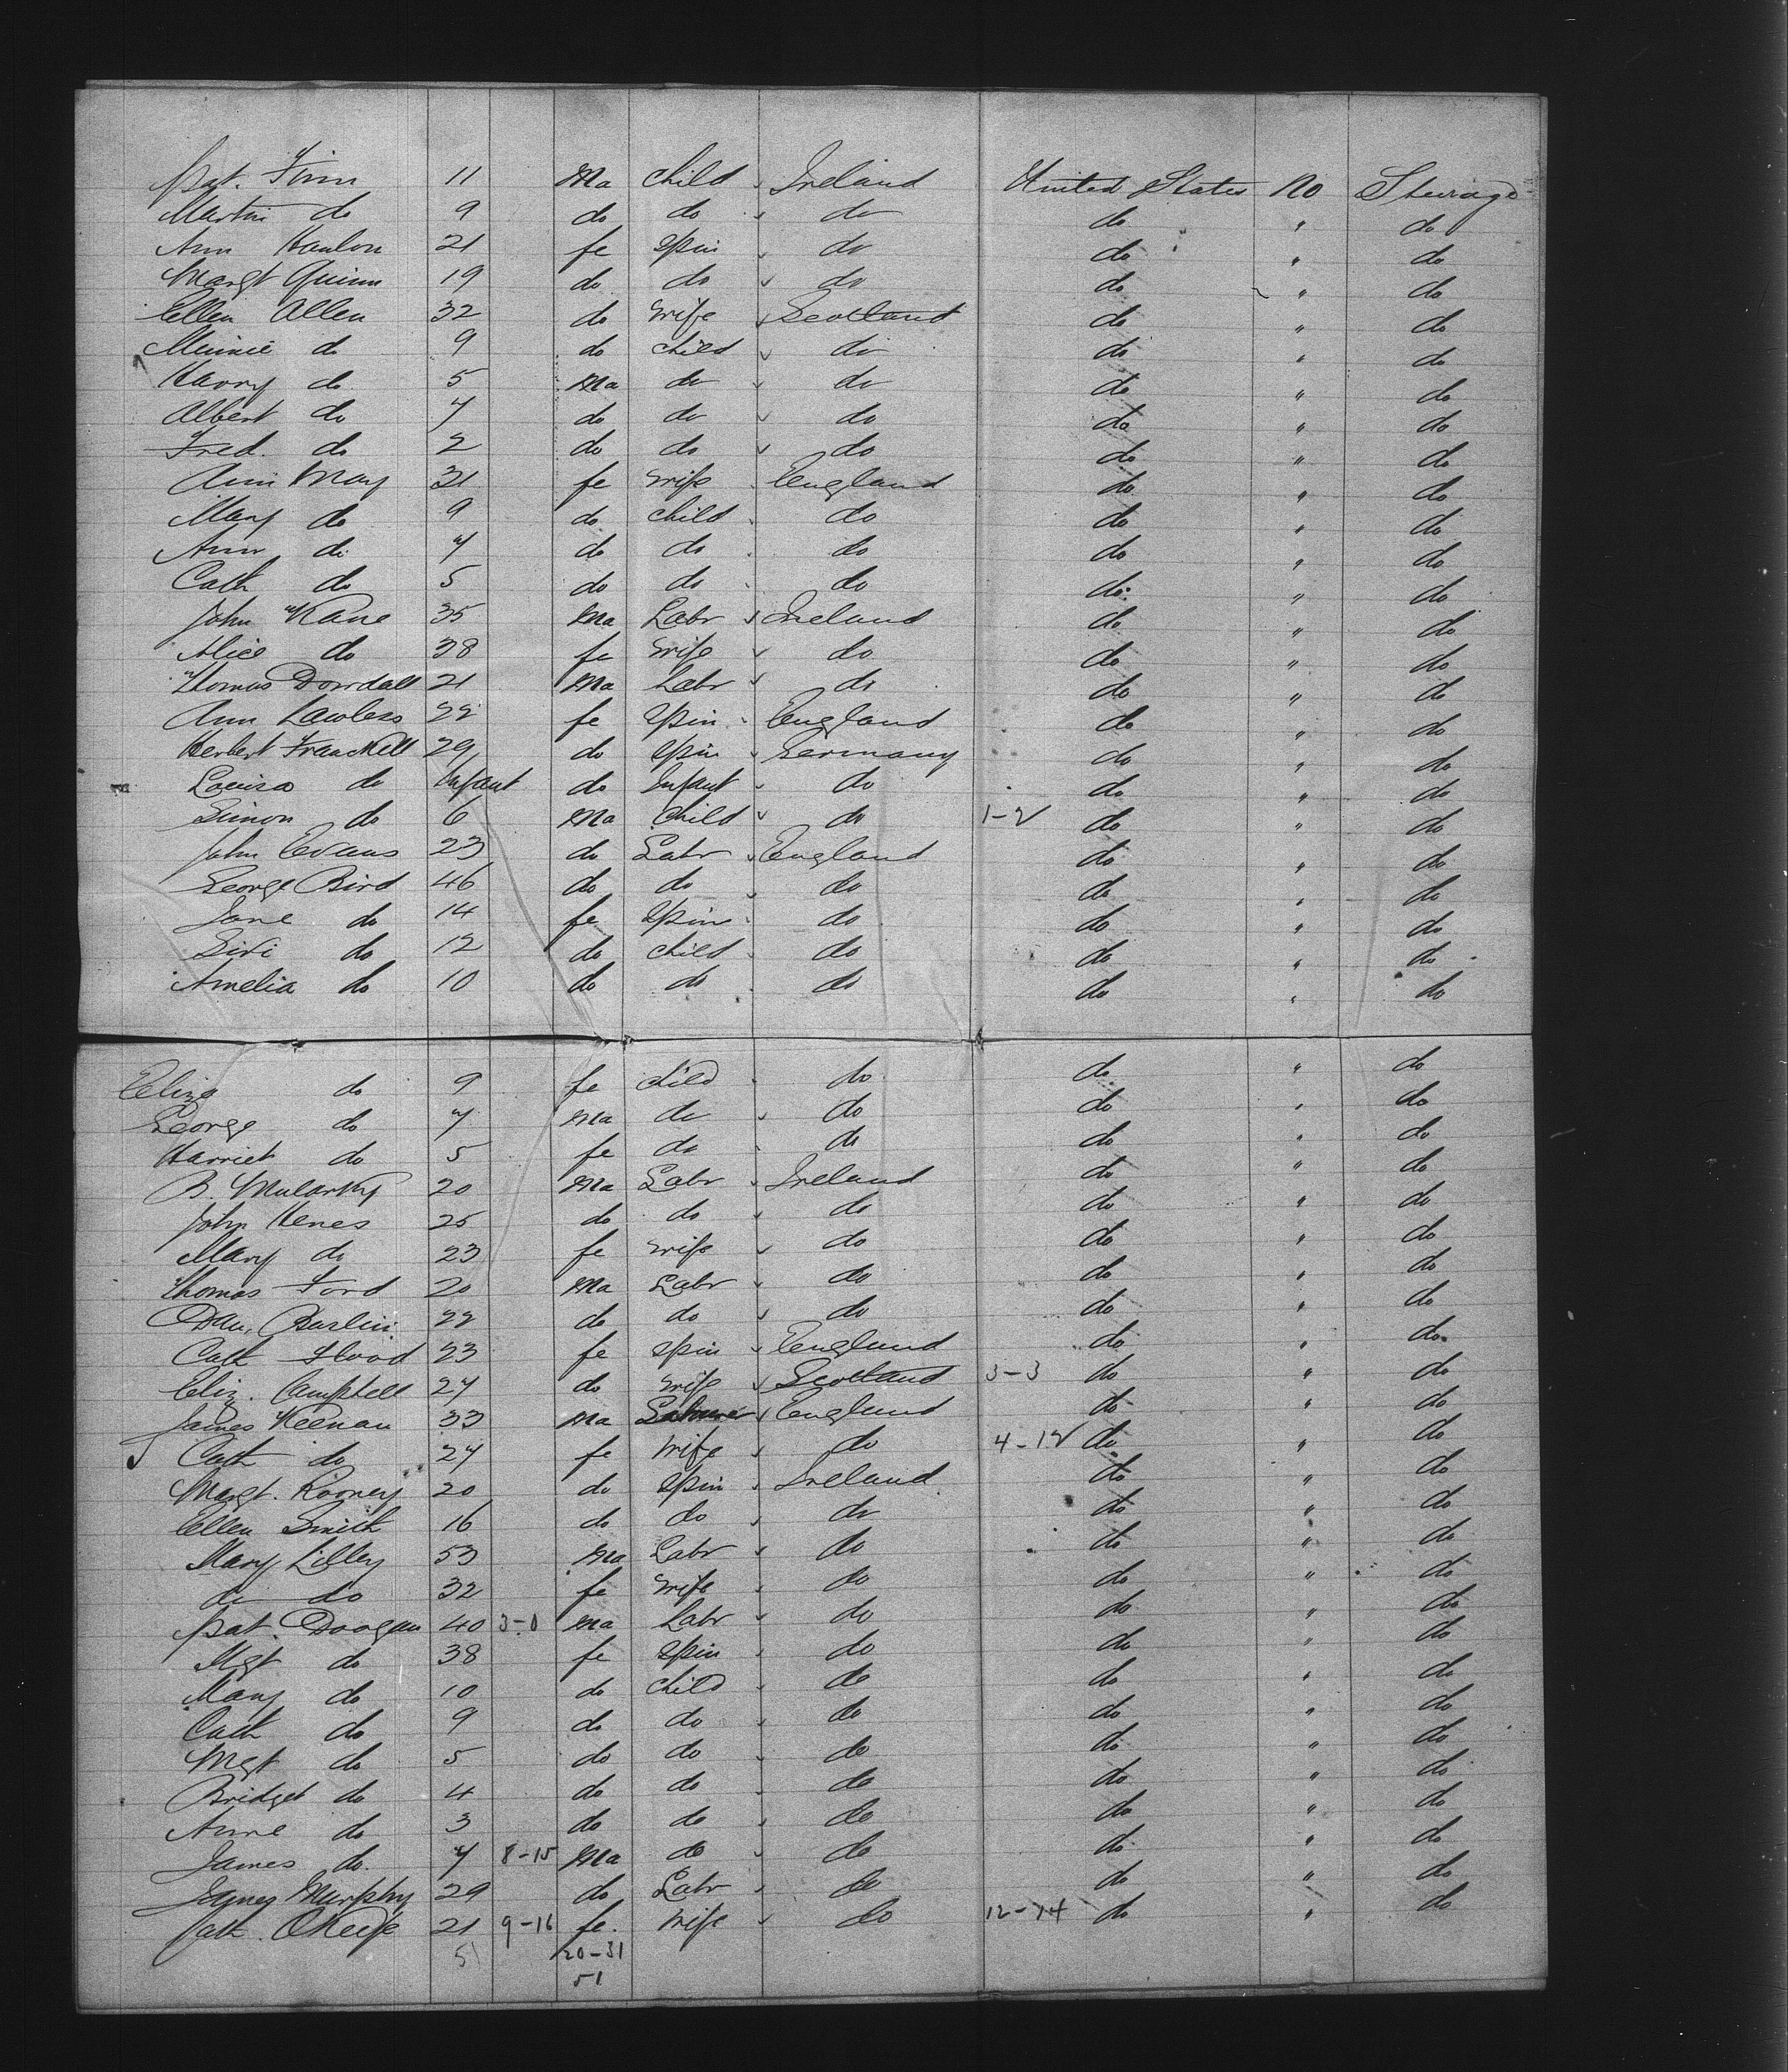 Pat. Finn 11 Ma Child Ireland United States No Steerage
Martin do 9 do do do do " do
Ann Hanlon 21 fe Spin do do " do
Margt Quinn 19 do do do do " do
Ellen Allen 32 do Wife Scotland do " do
Minnie do 9 do Child do do " do
Harry do 5 Ma do do do " do
Albert do 7 do do do do " do
Fred. do 2 do do do do " do
Ann May 31 fe Wife England do " do
Mary do 9 do Child do do " do
Ann do 7 do do do do " do
Cath do 5 do do do do " do
John Kane 35 Ma Labr Ireland do " do
Alice do 38 fe Wife do do " do
Thomas Dowdall 21 Ma Labr do do " do
Ann Lawless 22 fe Spin England do " do
Herbert 29 do Spin Germany do " do
Louisa do Infant do Infant do do " do
Simon do 6 Ma Child do 1-2 do " do
John Evans 23 do Labr England do " do
George Bird 46 do do do do " do
Jane do 14 fe Spin do do " do
do 12 do Child do do " do
Amelia do 10 do do do do " do
Eliza do 9 fe Child do do " do
George do 7 Ma do do do " do
Harriet do 5 fe do do do " do
B. Mularky 20 Ma Labr Ireland do " do
John Henes 25 do do do do " do
Mary do 23 fe Wife do do " do
Thomas Ford 20 Ma Labr do do " do
Dan. 22 do do do do " do
Cath Flood 23 fe Spin England do " do
Eliz. Campbell 27 do Wife Scotland 3-3 do " do
James Keenan 33 Ma Labourer England do " do
Cath do 27 fe Wife do 4-12 do " do
Margt. Rooney 20 do Spin Ireland do " do
Ellen Smith 16 do do do do " do
Mary Lilley 53 Ma Labr do do " do
do do 32 fe Wife do do " do
Pat. Doogan 40 3-0 Ma Labr do do " do
Mgt do 38 fe Spin do do " do
Mary do 10 do Child do do " do
Cath do 9 do do do do " do
Mgt do 5 do do do do " do
Bridget do 4 do do do do " do
Anne do 3 do do do do " do
James do. 7 8-15 Ma do do do " do
James Murphy 29 do Labr do do " do
Cath. OKeefe 21 9-16 fe. Wife do 12-74 do " do
51 20-31
51